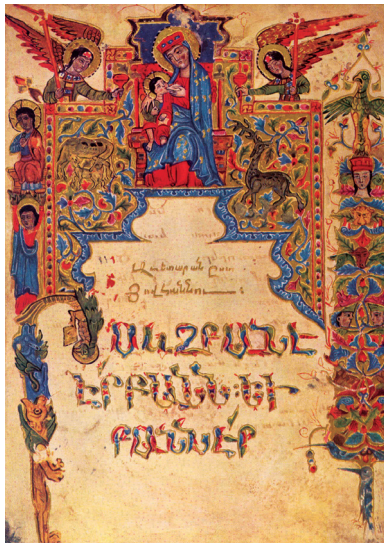 Աւետարան ըստ
Յովհաննու։
Ի ՍԿԶԲԱՆԷ
ԷՐ ԲԱՆՆ ԵՒ
ԲԱՆՆ ԷՐ